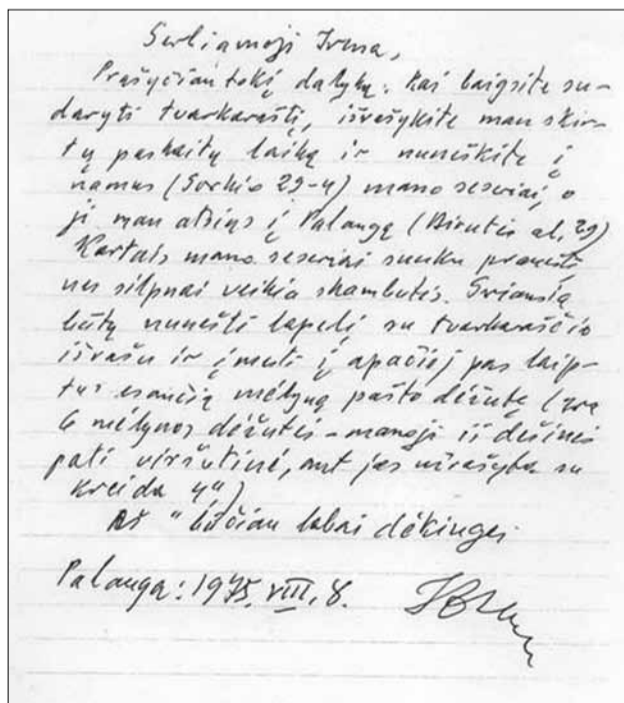 Gerbiamoji Irena,
Prašyčiau tokį dalyką: kai baigsite su-
daryti tvarkaraštį, išrašykite man skir-
tų paskaitų laiką ir nuneškite į
namus (Gorkio 29-4) mano seseriai, o
ji man atsiųs į Palangą (Birutės al. 29)
Kartais mano seseriai sunku
nes silpnai veikia skambutis. Geriausia
būtų nunešti lapelį su tvarkaraščio
išrašu ir įmesti į apačioj pas laip-
tus esančią mėlyną pašto dėžutę (yra
6 mėlynos dėžutės – manoji iš dešinės
pati viršutinė, ant jos užrašyta su
kreida 4")
Aš būčiau labai dėkingas
Palanga: 1975. VIII. 8.